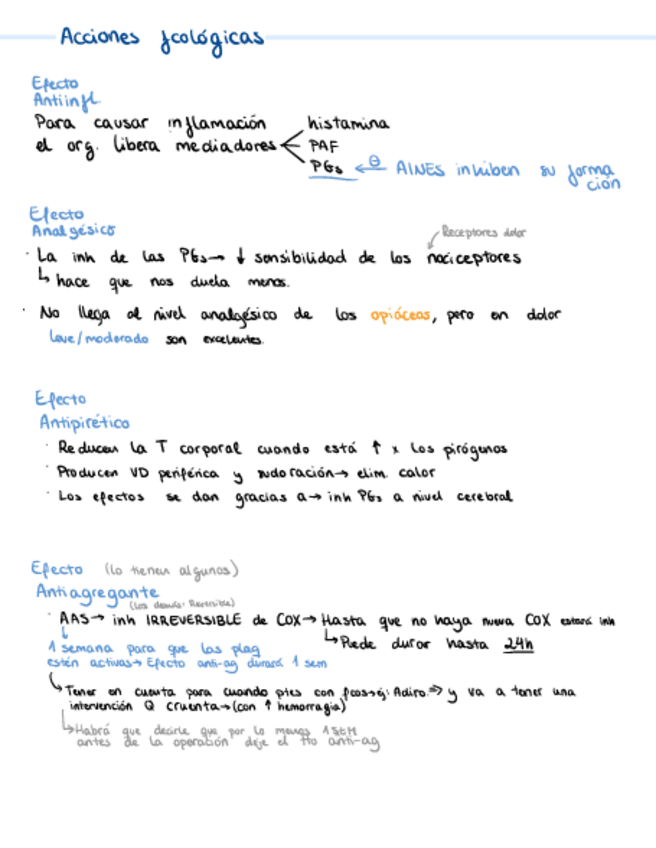 Acciones fcológicas
Efecto
Antiinfl
Para causar inflamación histamina
el org. libera mediadores < PAF
PGs ← ⊖ AINES inhiben su forma
ción
Efecto
Analgésico
Receptores dolor
· La inh de las PGs → ↓ sensibilidad de los nociceptores
↳ hace que nos duela menos.
· No llega al nivel analgésico de los opiáceos, pero en dolor
leve/moderado son excelentes.
Efecto
Antipirético
· Reducen la T corporal cuando está ↑ x los pirógenos
· Producen VD periférica y sudoración → elim. calor
· Los efectos se dan gracias a → inh PGs a nivel cerebral
Efecto (lo tienen algunos)
Antiagregante
(Los demás: Reversible)
· AAS → inh IRREVERSIBLE de COX → Hasta que no haya nueva COX estará inh
↳ Puede durar hasta 24h
1 semana para que las plaq
estén activas → Efecto anti-ag durará 1 sem
↳ Tener en cuenta para cuando ptes con fcos → ej: Adiro. ⇒ y va a tener una
intervención Q cruenta → (con ↑ hemorragia)
↳ Habrá que decirle que por lo menos 1 SEM
antes de la operación deje el tto anti-ag